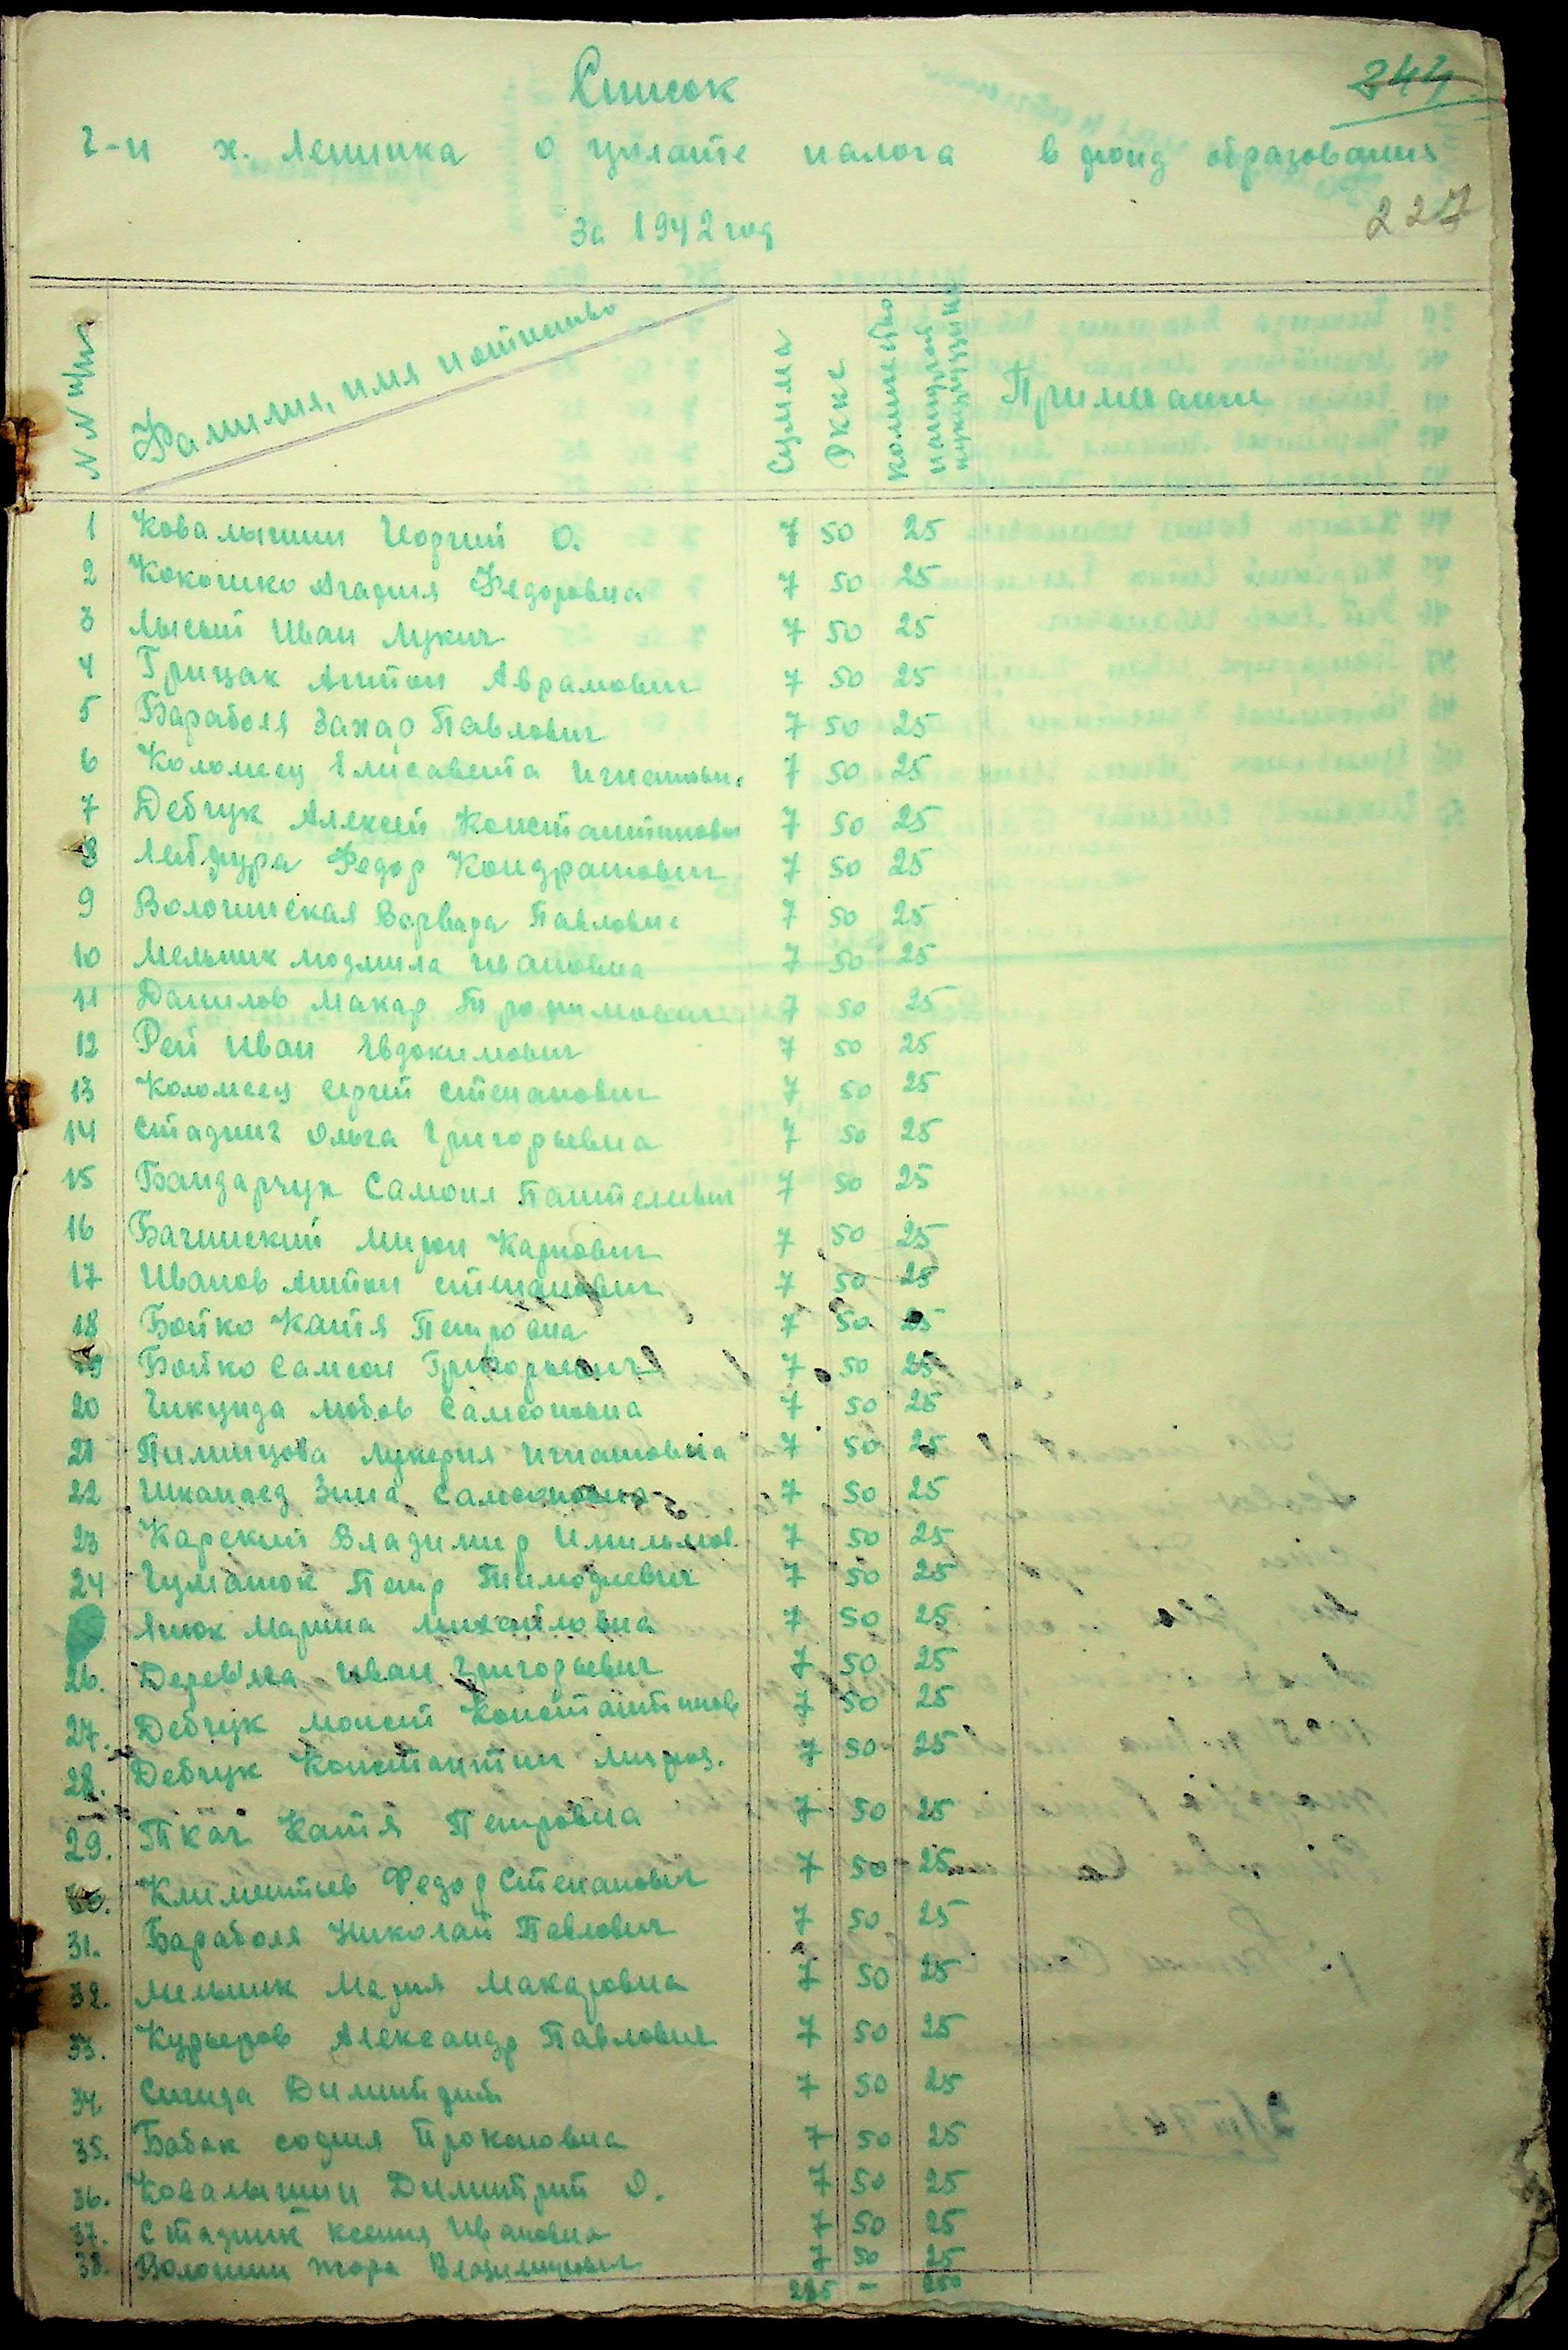 244
Список
х. Ленинка о уплате налога в фонд образования
227
за 1942 год
N N п/п
Фамилия, имя и отчество
Сумма
Рккс
количество
кукурузы
Примечание
1 Ковалышин Иоргий О. 7 50 25
2 Кокошко Агадия Федоровна 7 50 25
3 Лысый Иван Лукич 7 50 25
4 Грицак Антон Аврамович 7 50 25
5 Бараболя Захар Павлович 7 50 25
6 Коломеец Елисавета 7 50 25
7 Дебчук Алексей Константинович 7 50 25
8 Федор Кондратович 7 50 25
9 Волочинская Варвара Павловна 7 50 25
10 Мельник Людмила Ивановна 7 50 25
11 Данилов Макар Трофимович 7 50 25
12 Рей Иван Евдокимович 7 50 25
13 Коломеец Сергей Степанович 7 50 25
14 Стаднич Ольга Григорьевна 7 50 25
15 Бандарчук Самоил Пантелевич 7 50 25
16 Бачинский Мирон Карпович 7 50 25
17 Иванов Антон Степанович 7 50 25
18 Бойко Катя Петровна 7 50 25
19 Бойко Самсон Григорьевич 7 50 25
20 Чикунда Любов Самсоновна 7 50 25
21 Лукерия Игнатовна 7 50 25
22 Зина Самсоновна 7 50 25
23 Карский Владимир 7 50 25
24 Чуматюк Петр Тимофиевич 7 50 25
Янюк Марина Михайловна 7 50 25
26. Иван Григорьевич 7 50 25
27. Дебчук Моисей Константинов 7 50 25
28. Дебчук Константин 7 50 25
29. Ткач Катя Петровна 7 50 25
30. Климентьев Федор Степанович 7 50 25
31. Бараболя Николай Павлович 7 50 25
32. Мельник Мария Макаровна 7 50 25
33. Курьеров Александр Павлович 7 50 25
34 Сигида Димитрий 7 50 25
35. Бабак София Прокоповна 7 50 25
36. Ковалышин Димитрий О. 7 50 25
37. Стадник Ксения Ивановна 7 50 25
38. Волошин Жора Владимирович 7 50 25
285 –